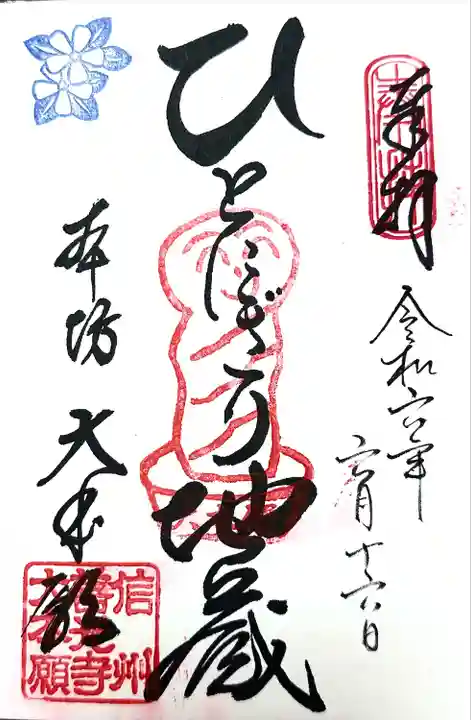 奉拝
令和六年
六月十六日
ひとにぎり地蔵
本坊 大本願
信州
善光寺
大本願